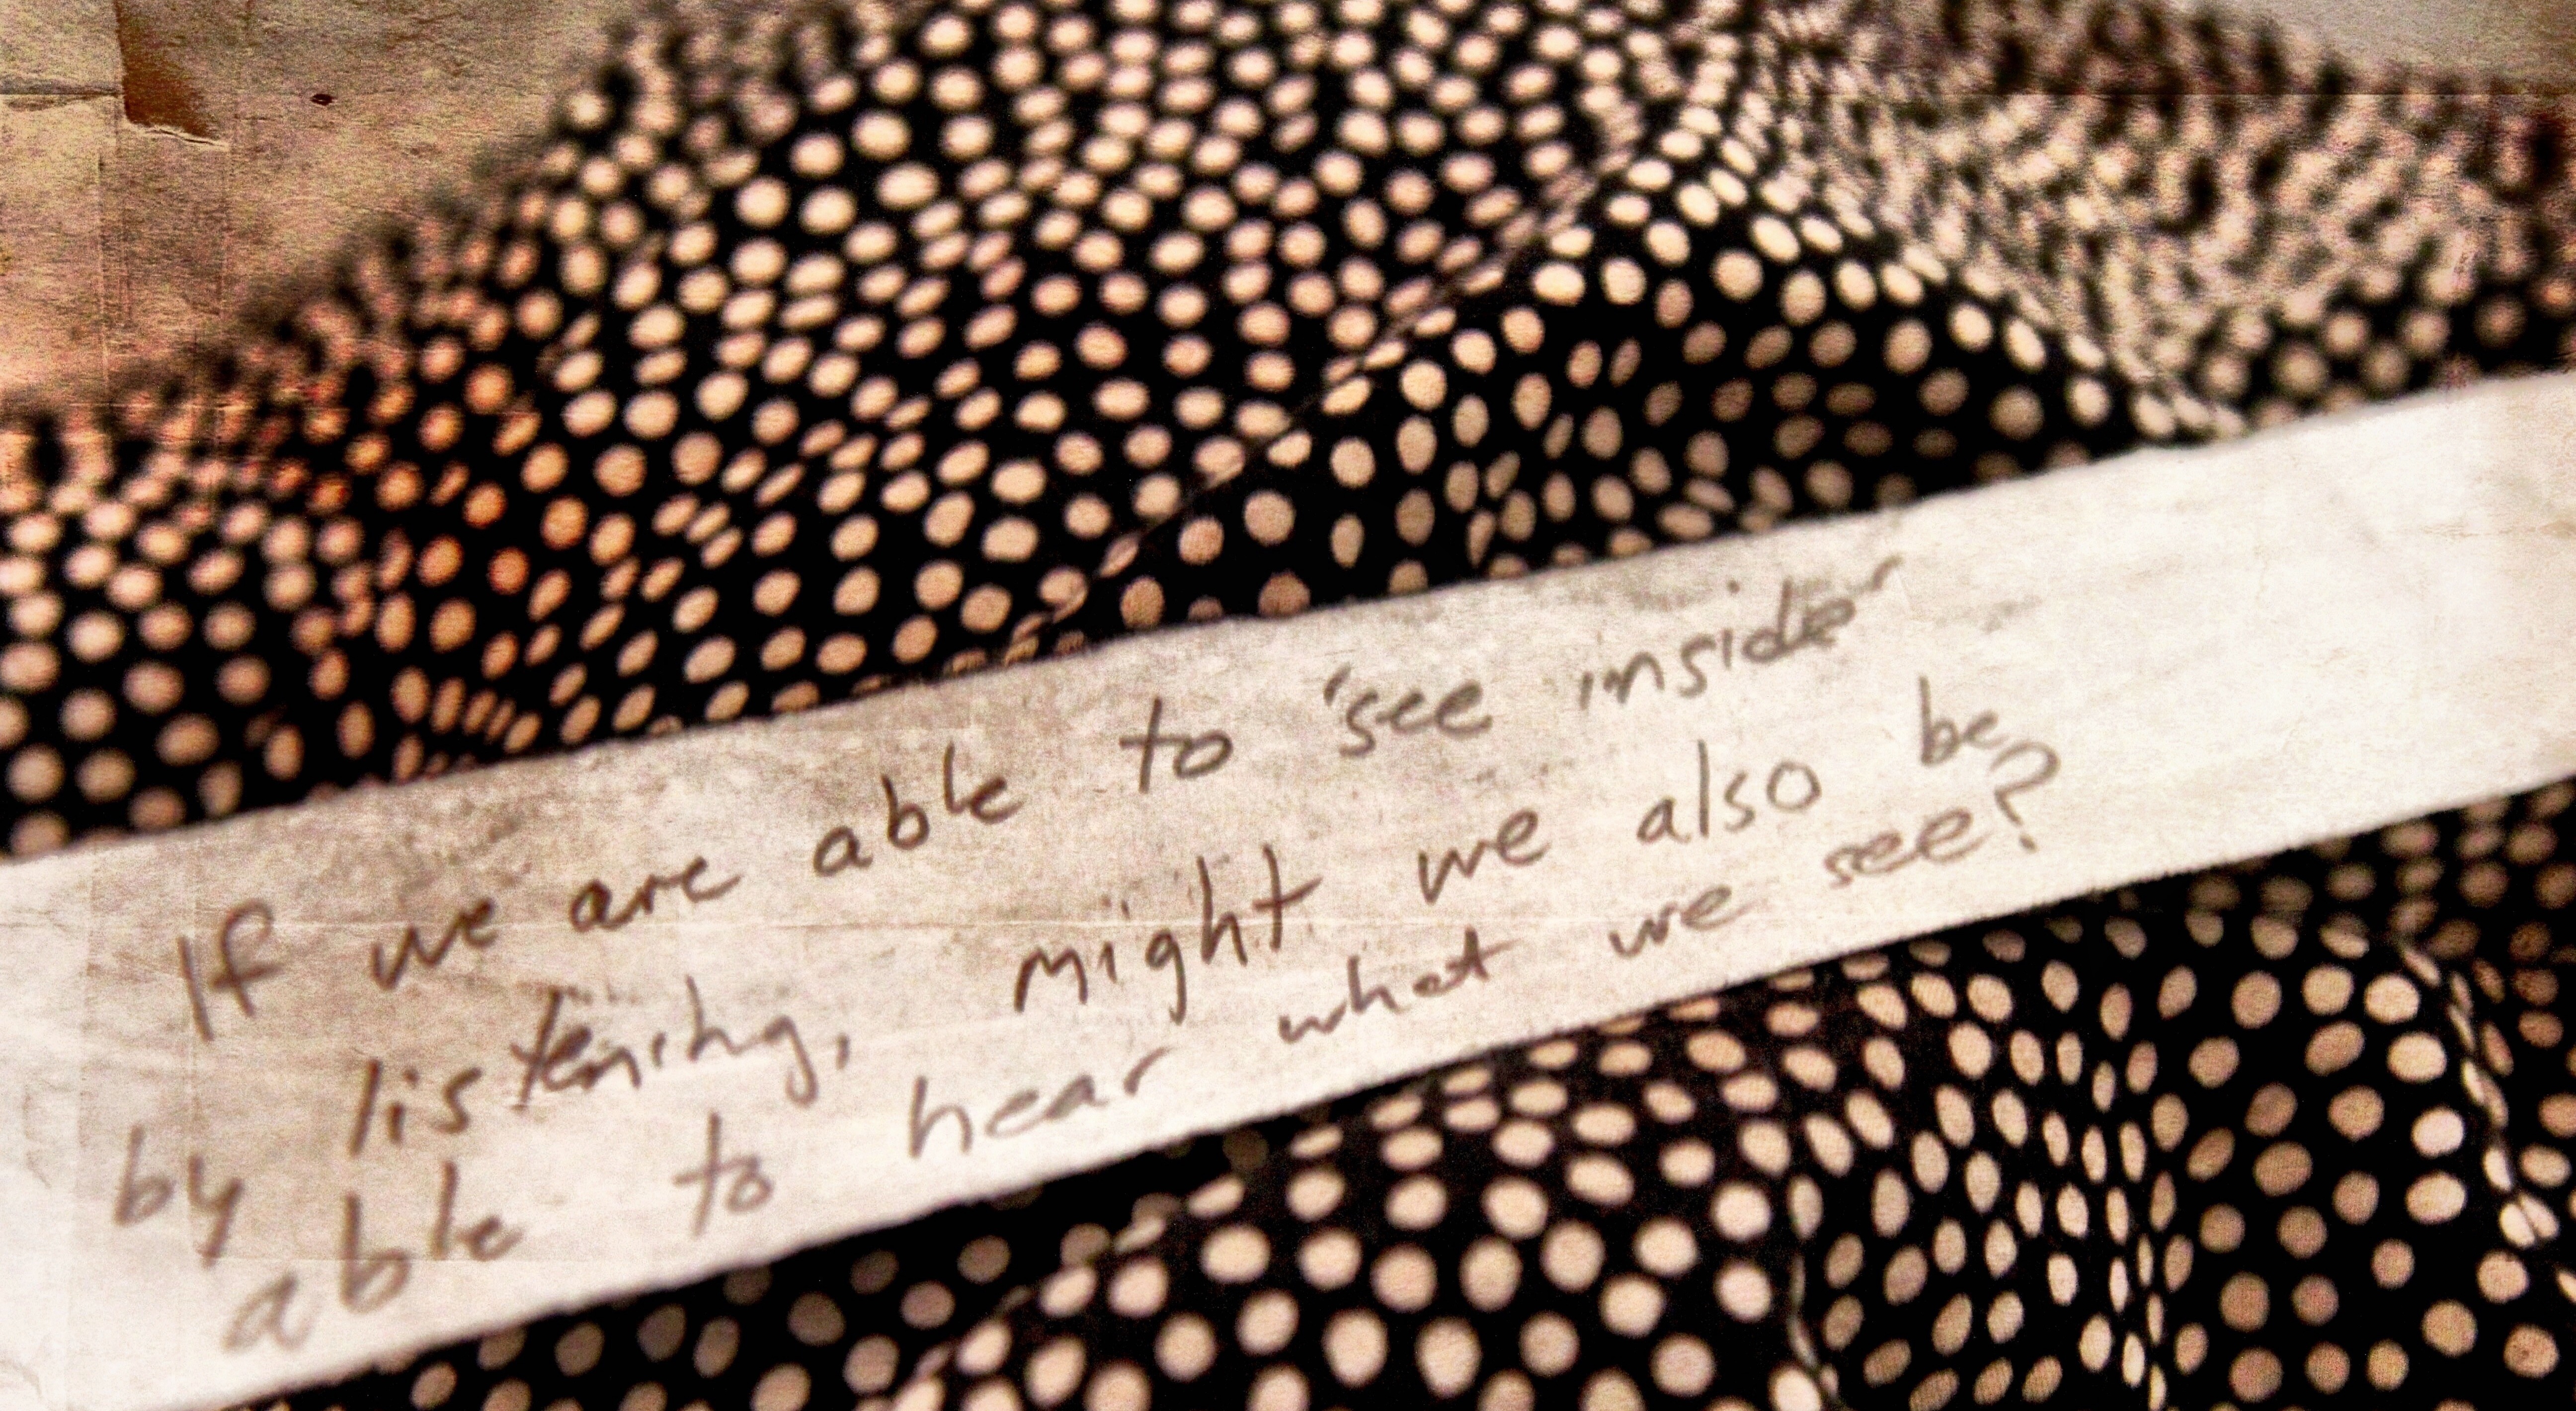 If we are able to 'see inside'
by listening, might we also be
able to hear what we see?